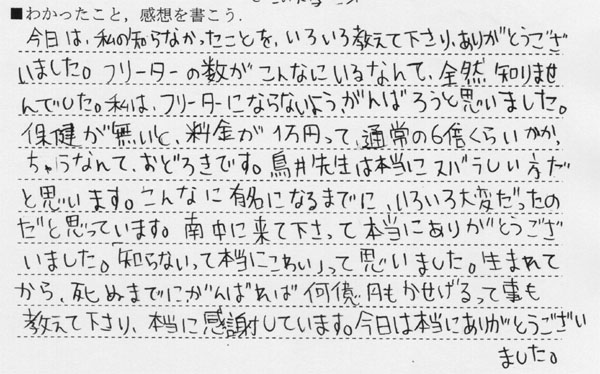 ■わかったこと，感想を書こう．
今日は、私の知らなかったことを、いろいろ教えて下さり、ありがとうござ
いました。フリーターの数がこんなにいるなんて、全然知りませ
んでした。私は、フリーターにならないよう、がんばろうと思いました。
保健が無いと、料金が1万円って、通常の6倍くらいかか、
ちゃうなんて、おどろきです。鳥井先生は本当にスバラしい方だ
と思います。こんなに有名になるまでに、いろいろ大変だったの
だと思っています。南中に来て下さって本当にありがとうござ
いました。「知らないって本当にこわい」って思いました。生まれて
から、死ぬまでにがんばれば何億円もかせげるって事も
教えて下さり、本当に感謝しています。今日は本当にありがとうござい
ました。